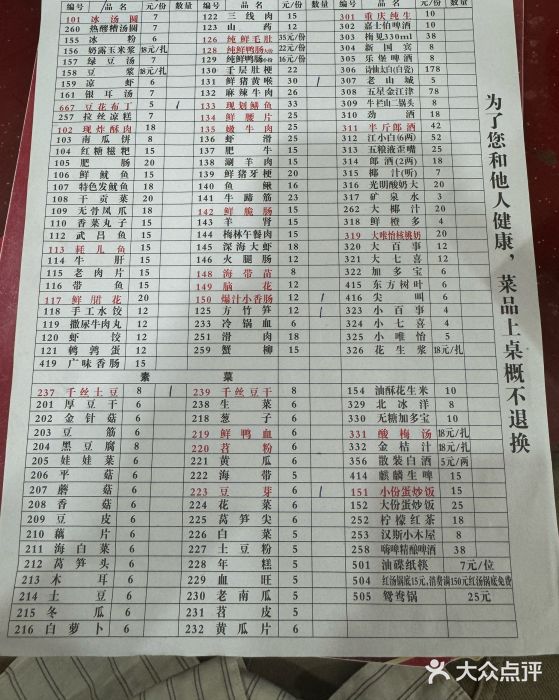 编号 品名 元/份 数量 编号 品名 元/份 数量 编号 品名 元/份 数量
101 冰汤圆 7 122 三线肉 15 301 重庆纯生 10
260 热醪糟汤圆 7 123 山药 12 302 嘉士伯啤酒 10
155 冰粉 6 126 纯鲜毛肚 35元/份 303 梅见330ml 38
156 奶露玉米浆 18元/扎 128 纯鲜鸭肠 22元/份 304 新国宾 8
157 绿豆汤 7 129 纯鲜鸭肠 16元/份 305 乐堡啤酒 8
158 豆浆 18元/扎 130 千层肚梗 22 306 诗仙太白(白瓷) 178
159 凉虾 6 131 鲜猪黄喉 30 1 307 老山城 5
161 银耳汤 7 132 麻辣牛肉 26 308 五星金江津 78
667 豆花布丁 5 1 133 现划鳝鱼 28 309 牛栏山二锅头 8
257 拉丝凉糕 7 134 鲜腰片 25 310 劲酒 18
102 现炸酥肉 18 135 嫩牛肉 26 311 半斤郎酒 42
103 南瓜饼 8 136 虾滑 25 312 江小白(6两) 52
104 红糖糍粑 15 137 肥牛 26 313 五粮液歪嘴 25
105 肥肠 20 138 涮羊肉 25 314 郎酒(2两) 18
106 鲜鱿鱼 25 139 鲜猪牙梗 20 315 椰汁(听) 7
107 特色发鱿鱼 18 140 鱼鳅 16 316 光明酸奶大 20
108 干贡菜 20 141 牛蹄筋 20 317 矿泉水 3
109 无骨凤爪 18 142 鲜脆肠 15 262 大椰汁 20
110 香菜丸子 15 143 羊肾 15 318 鲜橙多 4
112 武昌鱼 15 144 梅林午餐肉 15 319 大唯怡核桃奶 20
113 耗儿鱼 15 145 深海大虾 18 320 大百事 12
114 牛肝 15 146 火腿肠 12 321 大七喜 12
115 老肉片 15 148 海带苗 8 322 加多宝 6
116 带鱼 15 149 脑花 12 415 东方树叶 6
117 鲜郡花 20 150 爆汁小香肠 12 1 416 尖叫 6
118 手工水饺 12 125 方竹笋 12 1 323 小百事 4
119 撒尿牛肉丸 12 233 冷锅血 6 324 小七喜 4
120 虾饺 12 251 滑肉 18 325 小唯怡 5
121 鹌鹑蛋 12 259 蟹柳 15 326 花生浆 18元/扎
419 广味香肠 15
素菜
237 千丝土豆 8 1 239 千丝豆干 8 154 油酥花生米 10
201 厚豆干 6 238 生菜 6 329 北冰洋 8
202 金针菇 6 218 葱子 6 330 无糖加多宝 10
203 豆筋 6 219 鲜鸭血 6 331 酸梅汤 18元/扎
204 黑豆腐 8 220 苕粉 6 332 金桔汁 18元/扎
205 娃娃菜 6 221 黄瓜 6 356 散装白酒 5元/两
206 平菇 6 222 海带 5 414 麒麟生啤 15
207 蘑菇 6 223 豆芽 6 1 151 小份蛋炒饭 15
208 香菇 6 224 花菜 6 152 大份蛋炒饭 25
209 豆皮 6 225 莴笋尖 6 252 柠檬红茶 18
210 藕片 6 226 白菜 5 253 汉斯小木屋 8
211 海白菜 6 227 土豆粉 5 258 嗨啤精酿啤酒 38
212 莴笋头 6 228 年糕 5 501 油碟纸筷 7元/位
213 木耳 6 229 血旺 6 504 红汤锅底15元,消费满150元红汤锅底免费
214 土豆 6 230 老南瓜 6 505 鸳鸯锅 25元
215 冬瓜 6 231 苕皮 5
216 白萝卜 6 232 黄瓜片 6
为了您和他人健康，菜品上桌概不退换
大众点评